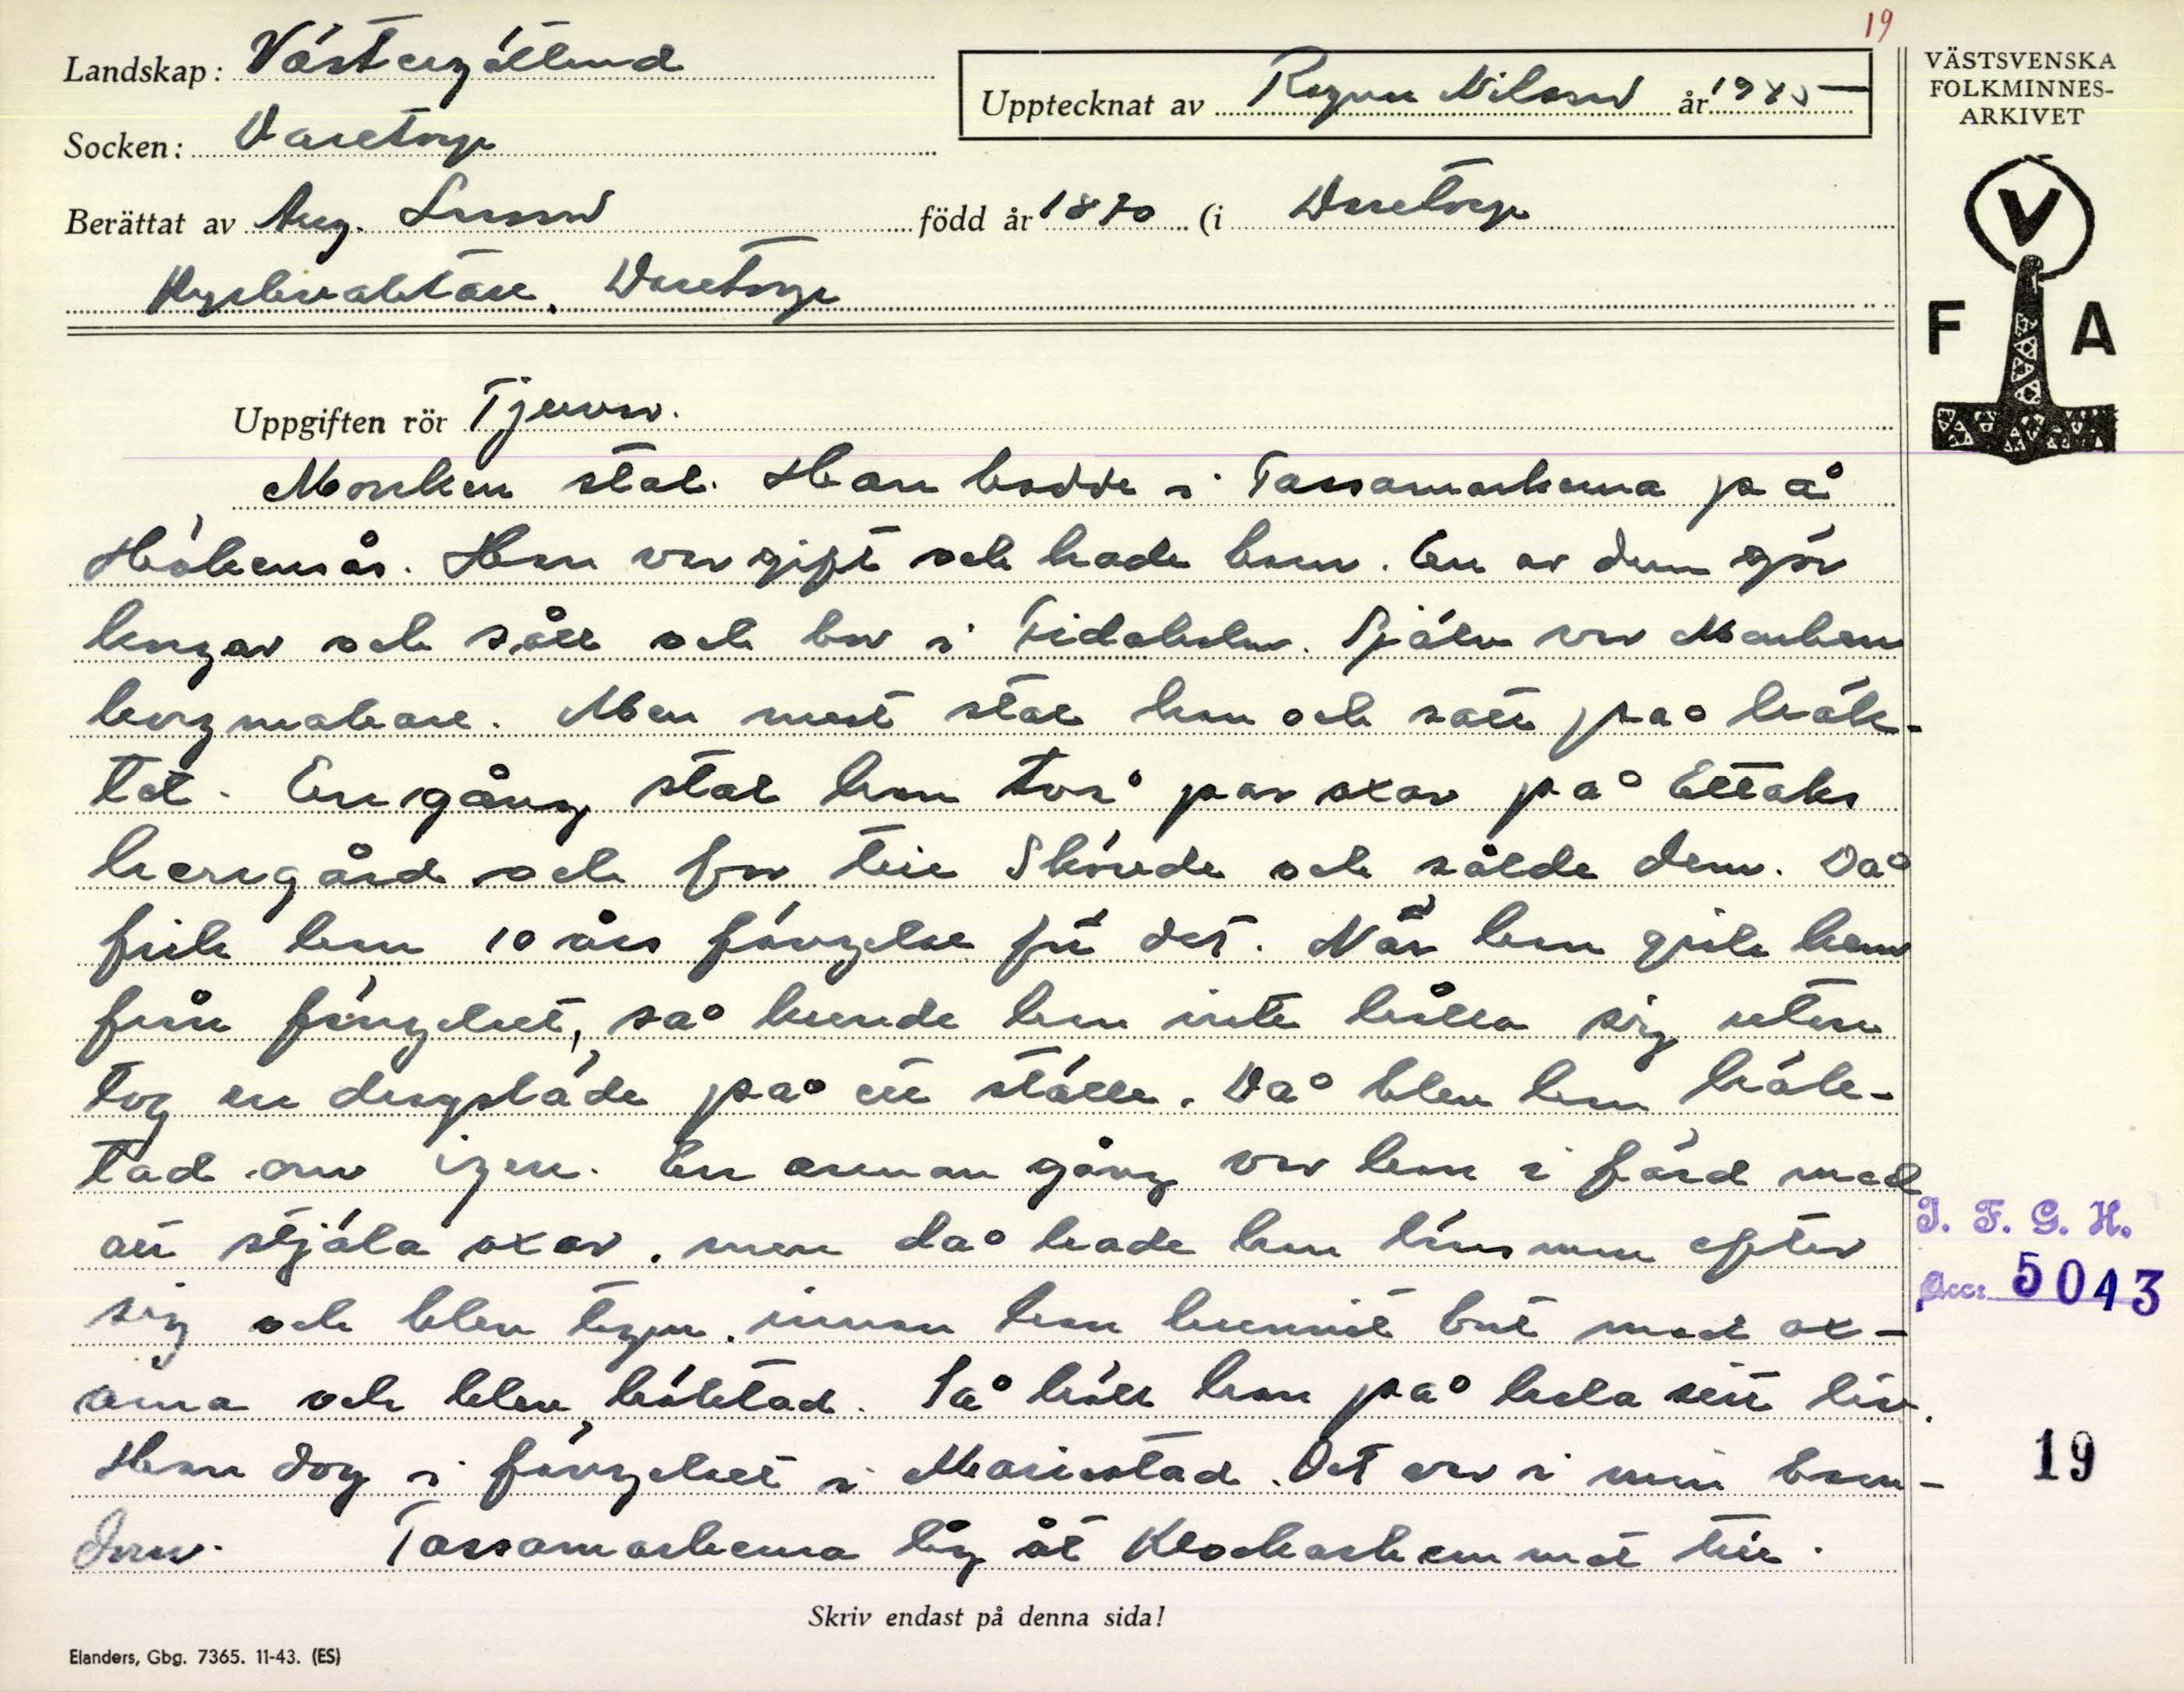 19
Landskap: Västergötland
Upptecknat av Ragnar Nilsson år 1945
VÄSTSVENSKA
FOLKMINNES-
ARKIVET
Socken: Varetorp
Berättat av Aug. Larsson född år 1870 (i Varetorp
Kyrkvaktare, Varetorp
V
F A
Uppgiften rör Tjuvar.
Monken stal. Han bodde i Tassamarkerna på
Hökensås. Han var gift och hade barn. En av dem gör
korgar och såll och bor i Tidaholm. Själv var Monken
korgmakare. Men mest stal han och satt på häk-
tet. En gång stal han två par oxar på Ettaks
herrgård och for till Skövde och sålde dem. Då
fick han 10 års fängelse för det. När han gick hem
från fängelset, så kunde han inte hålla sig utan
tog en dragsläde på ett ställe. Då blev han häk-
tad om igen. En annan gång var han i färd med
att stjäla oxar, men då hade han länsman efter
sig och blev tagen, innan han hunnit bort med ox-
arna och blev häktad. Så höll han på hela sitt liv.
Han dog i fängelset i Mariestad. Det var i min barn-
dom. Tassamarkerna låg åt Klockarhemmet till.
I. F. G. H.
Acc. 5043
19
Skriv endast på denna sida!
Elanders, Gbg. 7365. 11-43. (ES)